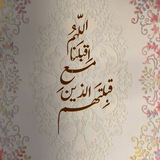 اللهم
اقبلنا
مع
الذين
قبلتهم